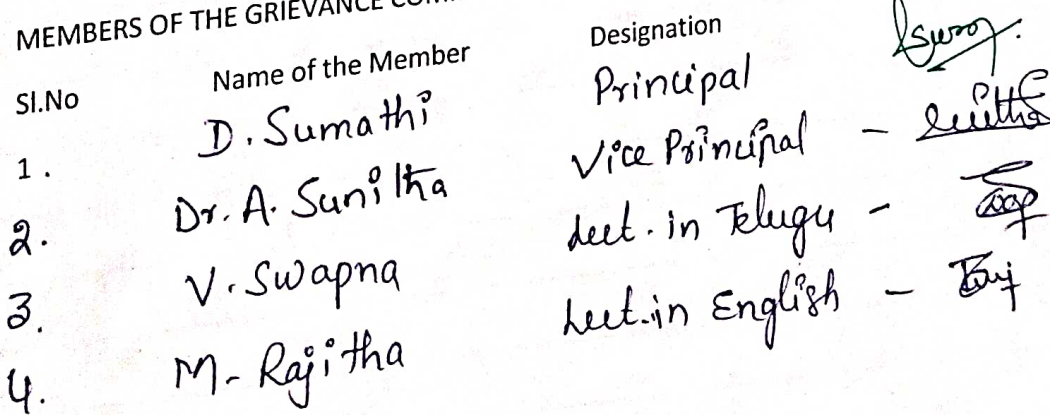 MEMBERS OF THE GRIEVANCE
Sl.No Name of the Member Designation
1. D. Sumathi Principal
2. Dr. A. Sunitha Vice Principal -
3. V. Swapna Lect. in Telugu -
4. M. Rajitha Lect. in English -